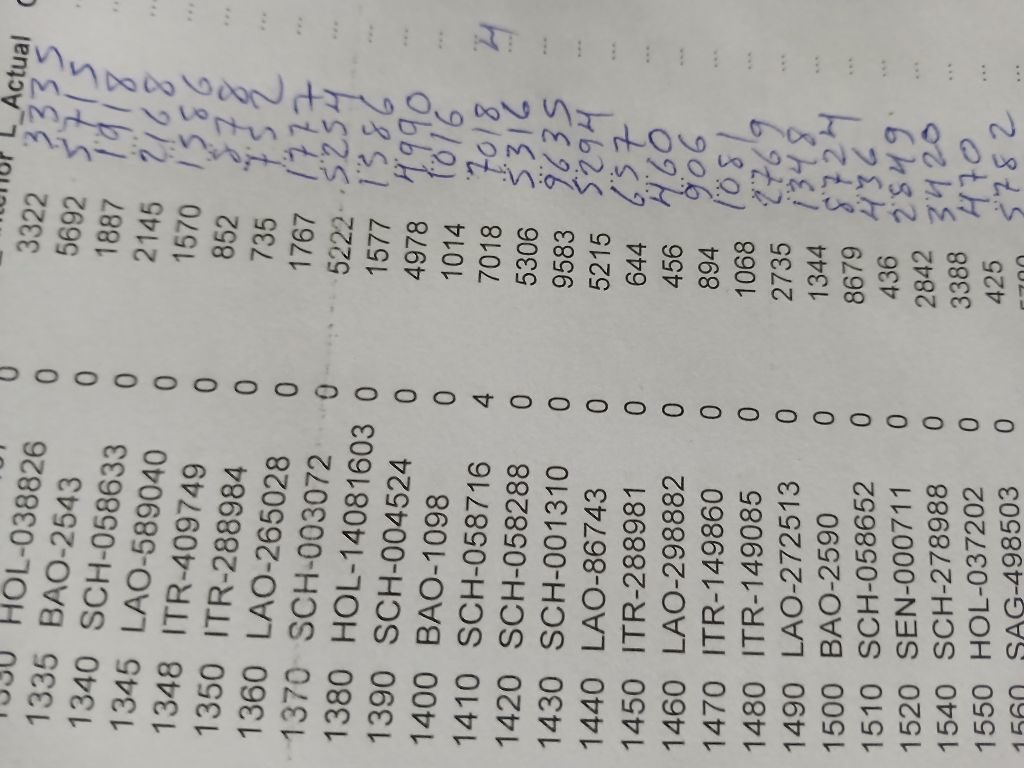 L_Actual
0 3322 3335 ...
1330 HOL-038826 0 5692 5715 ...
1335 BAO-2543 0 1887 1918 ...
1340 SCH-058633 0 2145 2168 ...
1345 LAO-589040 0 1570 1586 ...
1348 ITR-409749 0 852 878 ...
1350 ITR-288984 0 735 752 ...
1360 LAO-265028 0 1767 1777 ...
1370 SCH-003072 0 5222 5254 ...
1380 HOL-14081603 0 1577 1586 ...
1390 SCH-004524 0 4978 4990 ...
1400 BAO-1098 0 1014 1016 ...
1410 SCH-058716 4 7018 7018 4
1420 SCH-058288 0 5306 5316 ...
1430 SCH-001310 0 9583 9635 ...
1440 LAO-86743 0 5215 5294 ...
1450 ITR-288981 0 644 657 ...
1460 LAO-298882 0 456 460 ...
1470 ITR-149860 0 894 906 ...
1480 ITR-149085 0 1068 1081 ...
1490 LAO-272513 0 2735 2769 ...
1500 BAO-2590 0 1344 1348 ...
1510 SCH-058652 0 8679 8724 ...
1520 SEN-000711 0 436 436 ...
1540 SCH-278988 0 2842 2849 ...
1550 HOL-037202 0 3388 3420 ...
1560 SAG-498503 0 425 470 ...
5782